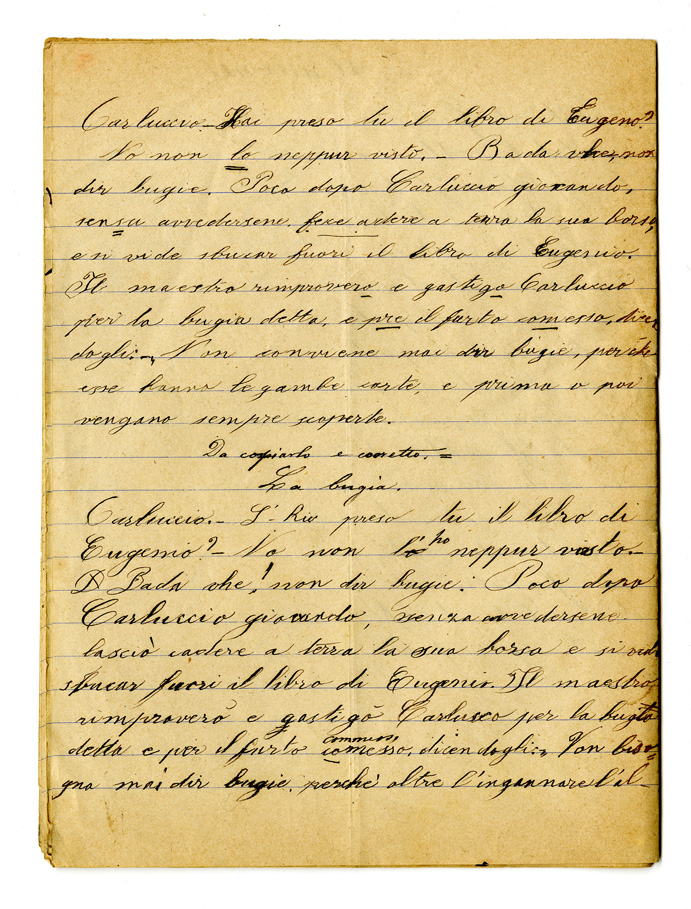 Carluccio. Hai preso tu il libro di Eugeno?
No non lo neppur visto. - Bada vhe, non
dir bugie. Poco dopo Carluccio giocando,
sensa avvedersene. fece cadere a terra la sua borsa,
e si vide sbucar fuori il libro di Eugenio.
Il maestro rimprovero e gastigo Carluccio
per la bugia detta, e pre il furto comesso, dicen
dogli:- Non conviene mai dir bugie, perchè
esse hanno le gambe corte, e prima o poi
vengano sempre scoperte.
Da copiarlo e corretto. =
La bugia.
Carluccio. - L'-hio preso tu il libro di
Eugenio? - No non l'ho neppur visto. -
Bada vhe! non dir bugie: Poco dopo
Carluccio giocando, senza avvedersene.
lasciò cadere a terra la sua borsa e si vide
sbucar fuori il libro di Eugenio. Il maestro,
rimproverò e gastigò Carluccio per la bugia
detta e per il furto comesso, commesso dicendogli:- Non biso-
gna mai dir bugie, perchè oltre l'ingannare l'al-